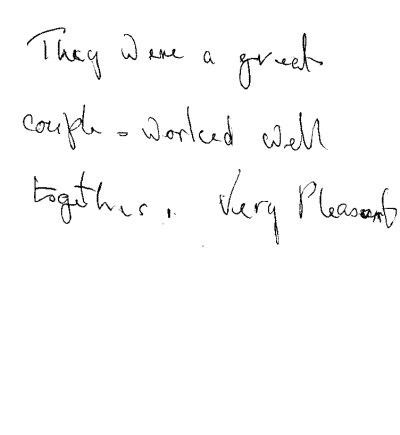 They were a great
couple - worked well
together. Very Pleasant